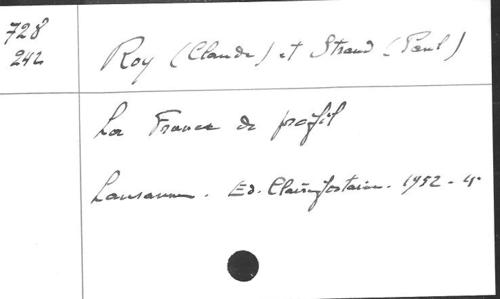 728
242
Roy (Claude) et Strand (Paul)
La France de profil
Lausanne. Ed. Clairefontaine. 1952 - 4°